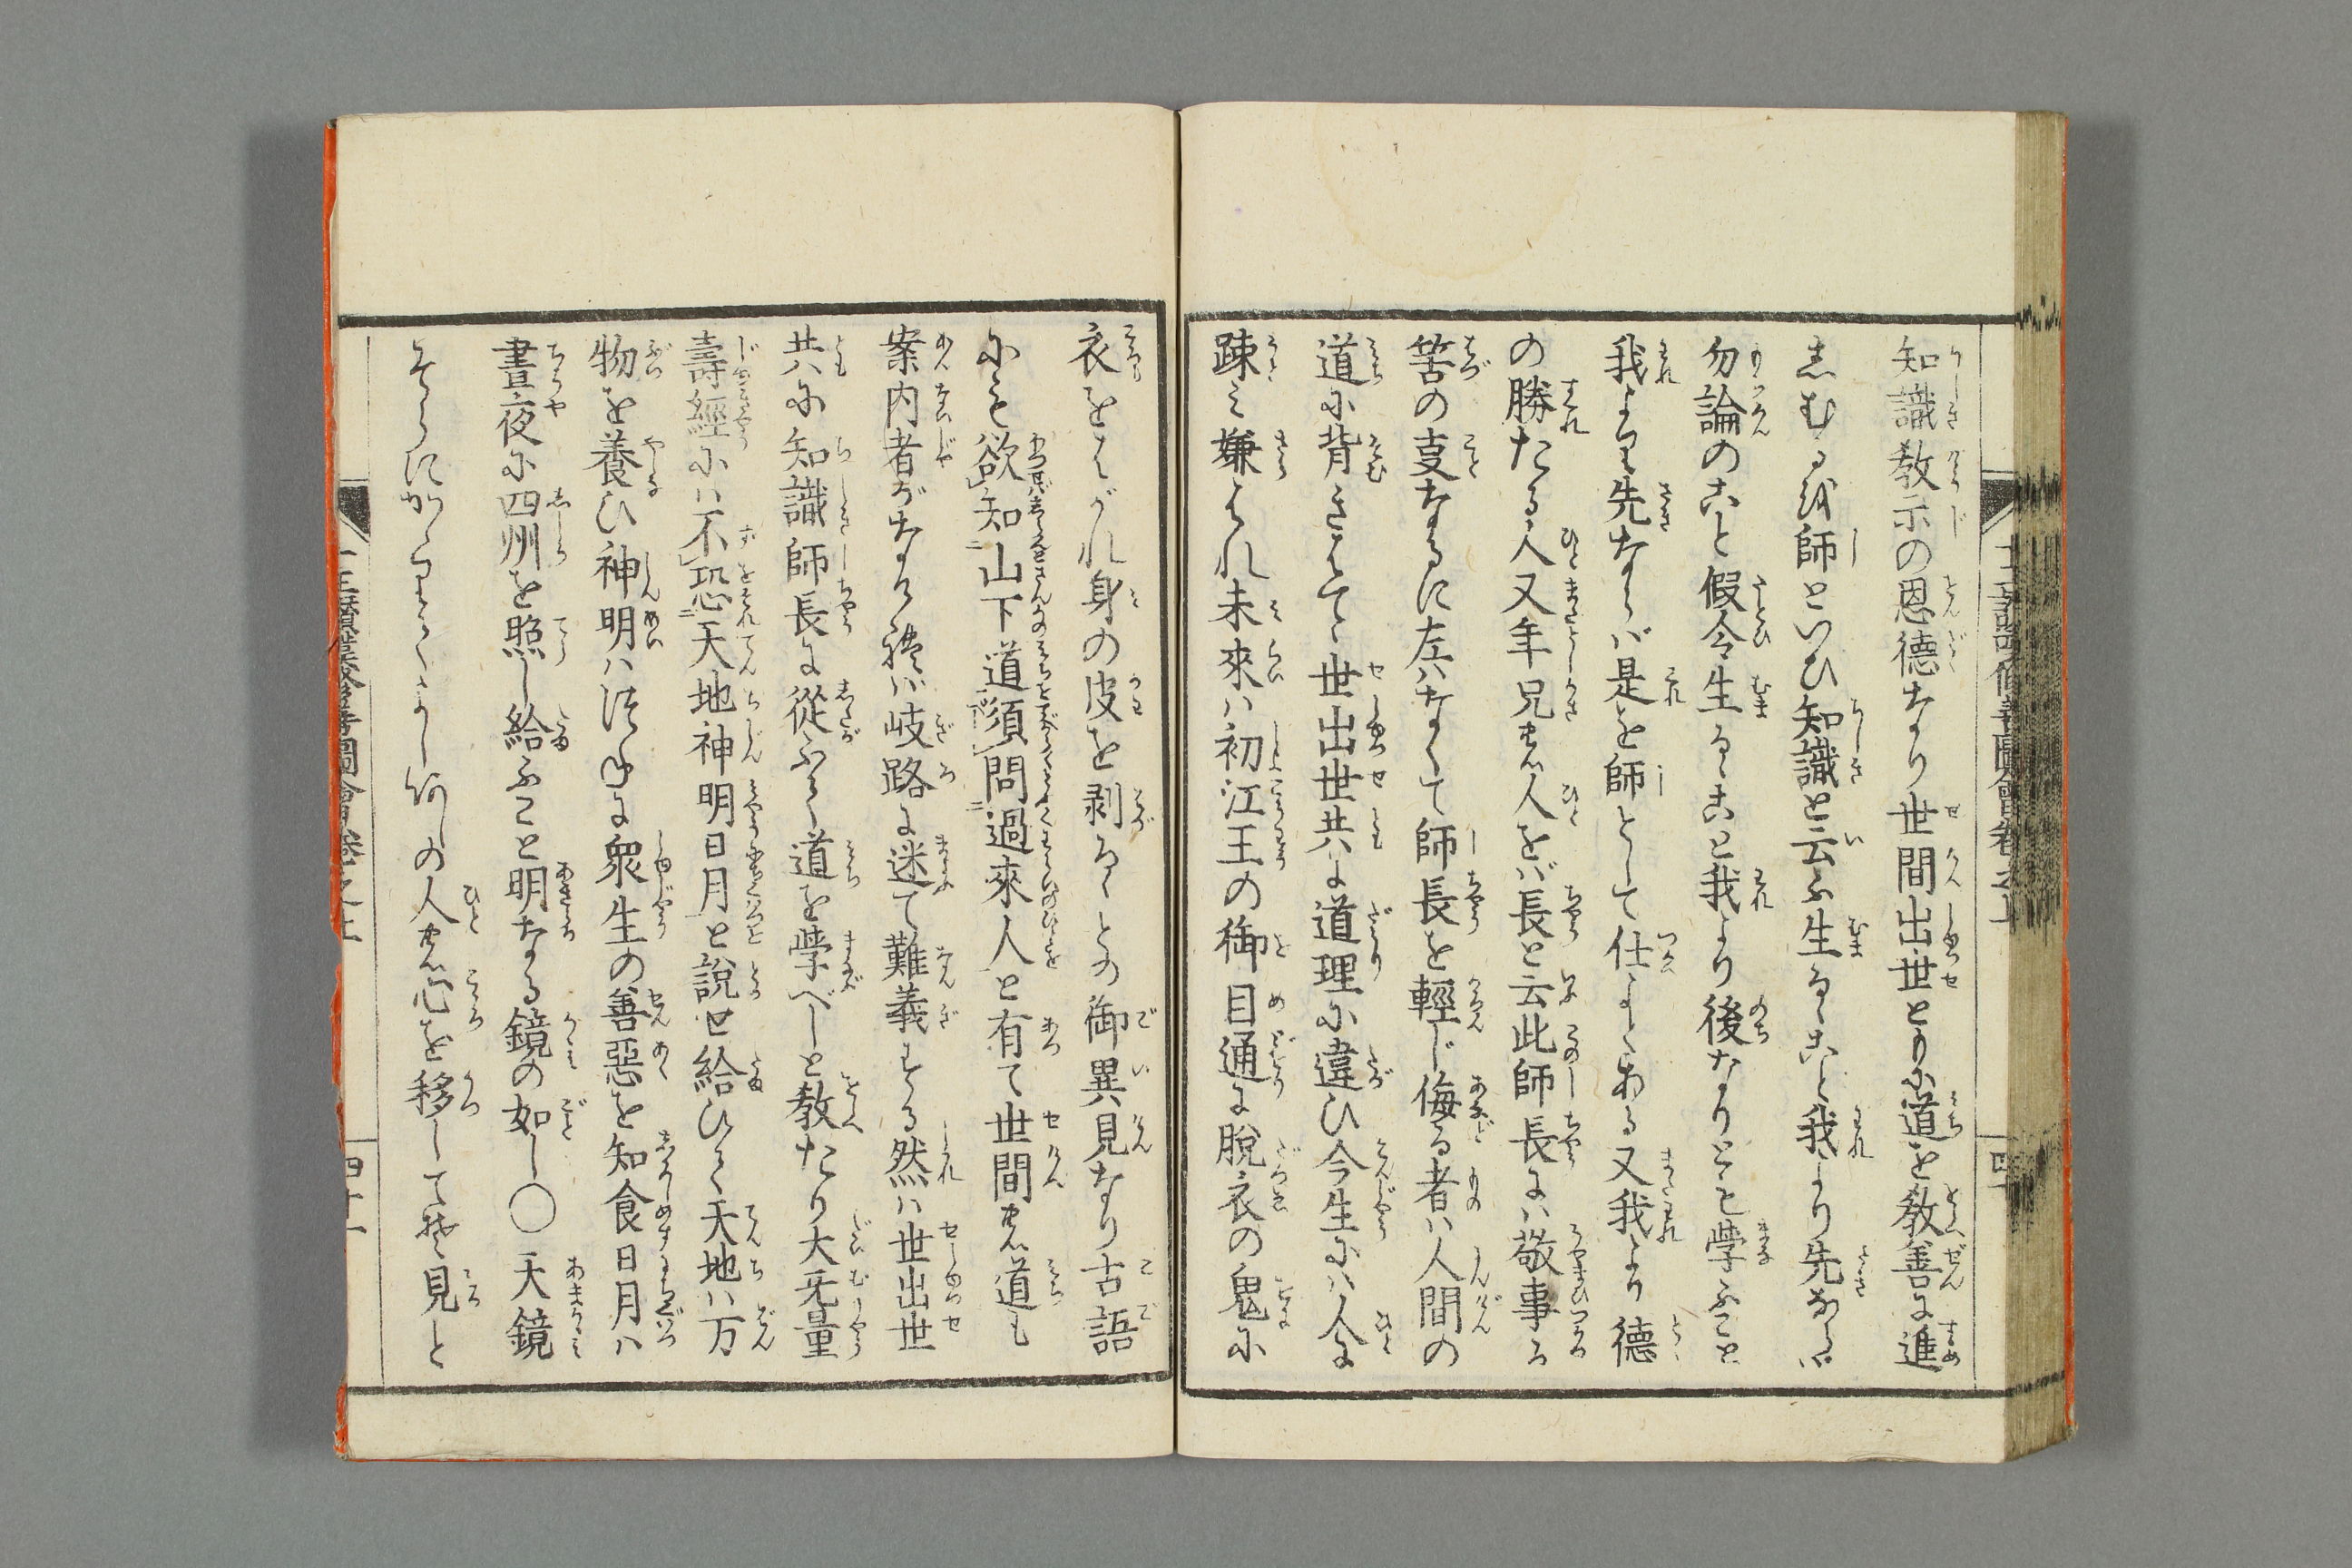 知識教示の恩德なり世間出世ともに道を教善に進
しむる故師といひ知識と云ふ生るゝこと我より先ならば
勿論のこと假令生るゝこと我より後なりとも學ふこと
我より先ならバ是を師として仕ふべくある又我より德
の勝たる人又年兄き人をバ長と云此師長にハ敬事る
筈の叓なるに左ハなくて師長を輕じ侮る者ハ人間の
道に背きはてゝ世出世共に道理に違ひ今生にハ人に
疎み嫌はれ未來ハ初江王の御目通に脫衣の鬼に
衣をはがれ身の皮を剥るゝとの御異見なり古語
にも欲知山下道須問過來人と有て世間の道も
案内者がなけれバ岐路に迷て難義する然ハ世出世
共に知識師長に從ふて道を學べしと教たり大无量
壽經にハ不恐天地神明日月と說せ給ひて天地ハ万
物を養ひ神明ハつねに衆生の善惡を知食日月ハ
晝夜に四州を照し給ふこと明なる鏡の如し〇天鏡
そらにかゝりて
の人の心を移してぞ見と
四十一